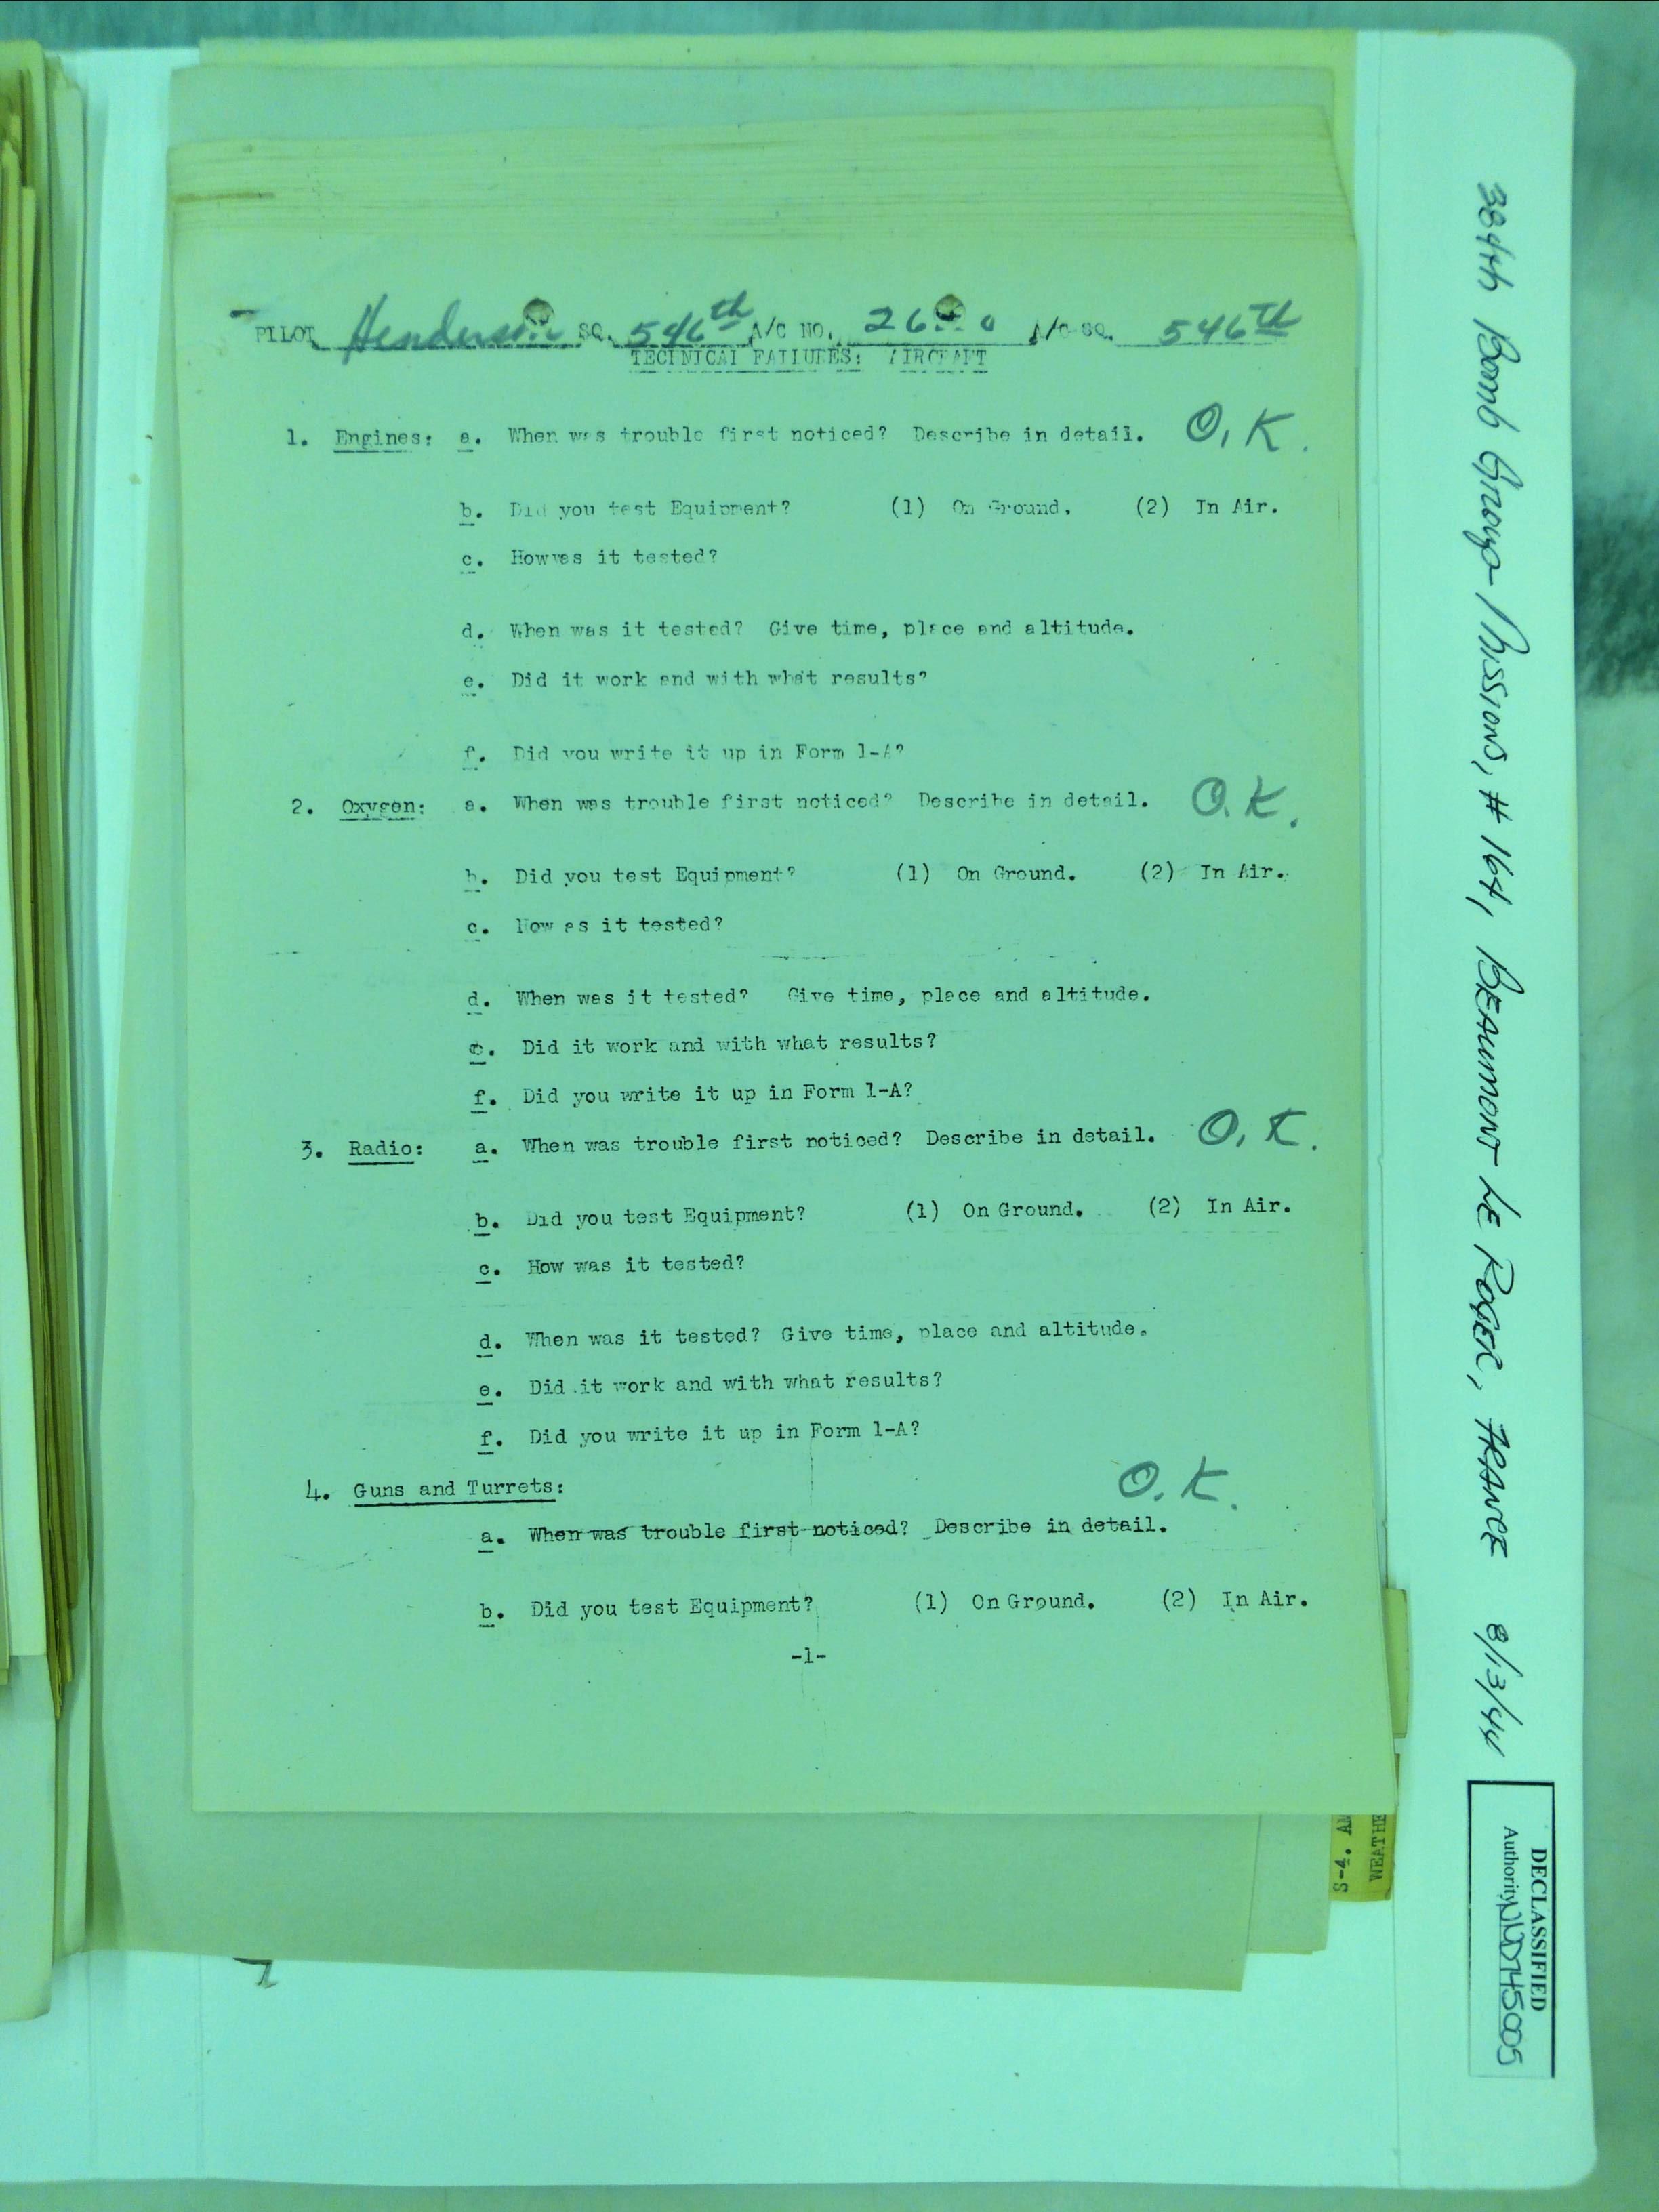 PILOT Henderson SQ. 546th A/C NO. A/C SQ. 546th
TECHNICAL FAILURES: AIRCRAFT
1. Engines: a. When was trouble first noticed? Describe in detail. O.K.
b. Did you test Equipment? (1) On Ground. (2) In Air.
c. How was it tested?
d. When was it tested? Give time, place and altitude.
e. Did it work and with what results?
f. Did you write it up in Form 1-A?
2. Oxygen: a. When was trouble first noticed? Describe in detail. O.K.
b. Did you test Equipment? (1) On Ground. (2) In Air.
c. How as it tested?
d. When was it tested? Give time, place and altitude.
e. Did it work and with what results?
f. Did you write it up in Form 1-A?
3. Radio: a. When was trouble first noticed? Describe in detail. O.K.
b. Did you test Equipment? (1) On Ground. (2) In Air.
c. How was it tested?
d. When was it tested? Give time, place and altitude.
e. Did it work and with what results?
f. Did you write it up in Form 1-A?
4. Guns and Turrets: O.K.
a. When was trouble first noticed? Describe in detail.
b. Did you test Equipment? (1) On Ground. (2) In Air.
-1-
384th Bomb Group - Missions, #164, BEAUMONT LE ROGER, FRANCE 8/13/44
DECLASSIFIED
Authority NND745005
S-2. 
WEATHE